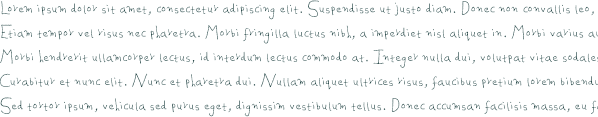 Lorem ipsum dolor sit amet, consectetur adipiscing elit. Suspendisse ut justo diam. Donec non convallis leo,
Etiam tempor vel risus nec pharetra. Morbi fringilla luctus nibh, a imperdiet nisl aliquet in. Morbi varius au
Morbi hendrerit ullamcorper lectus, id interdum lectus commodo at. Integer nulla dui, volutpat vitae sodales
Curabitur et nunc elit. Nunc et pharetra dui. Nullam aliquet ultrices risus, faucibus pretium lorem bibendu
Sed tortor ipsum, vehicula sed purus eget, dignissim vestibulum tellus. Donec accumsan facilisis massa, eu fe